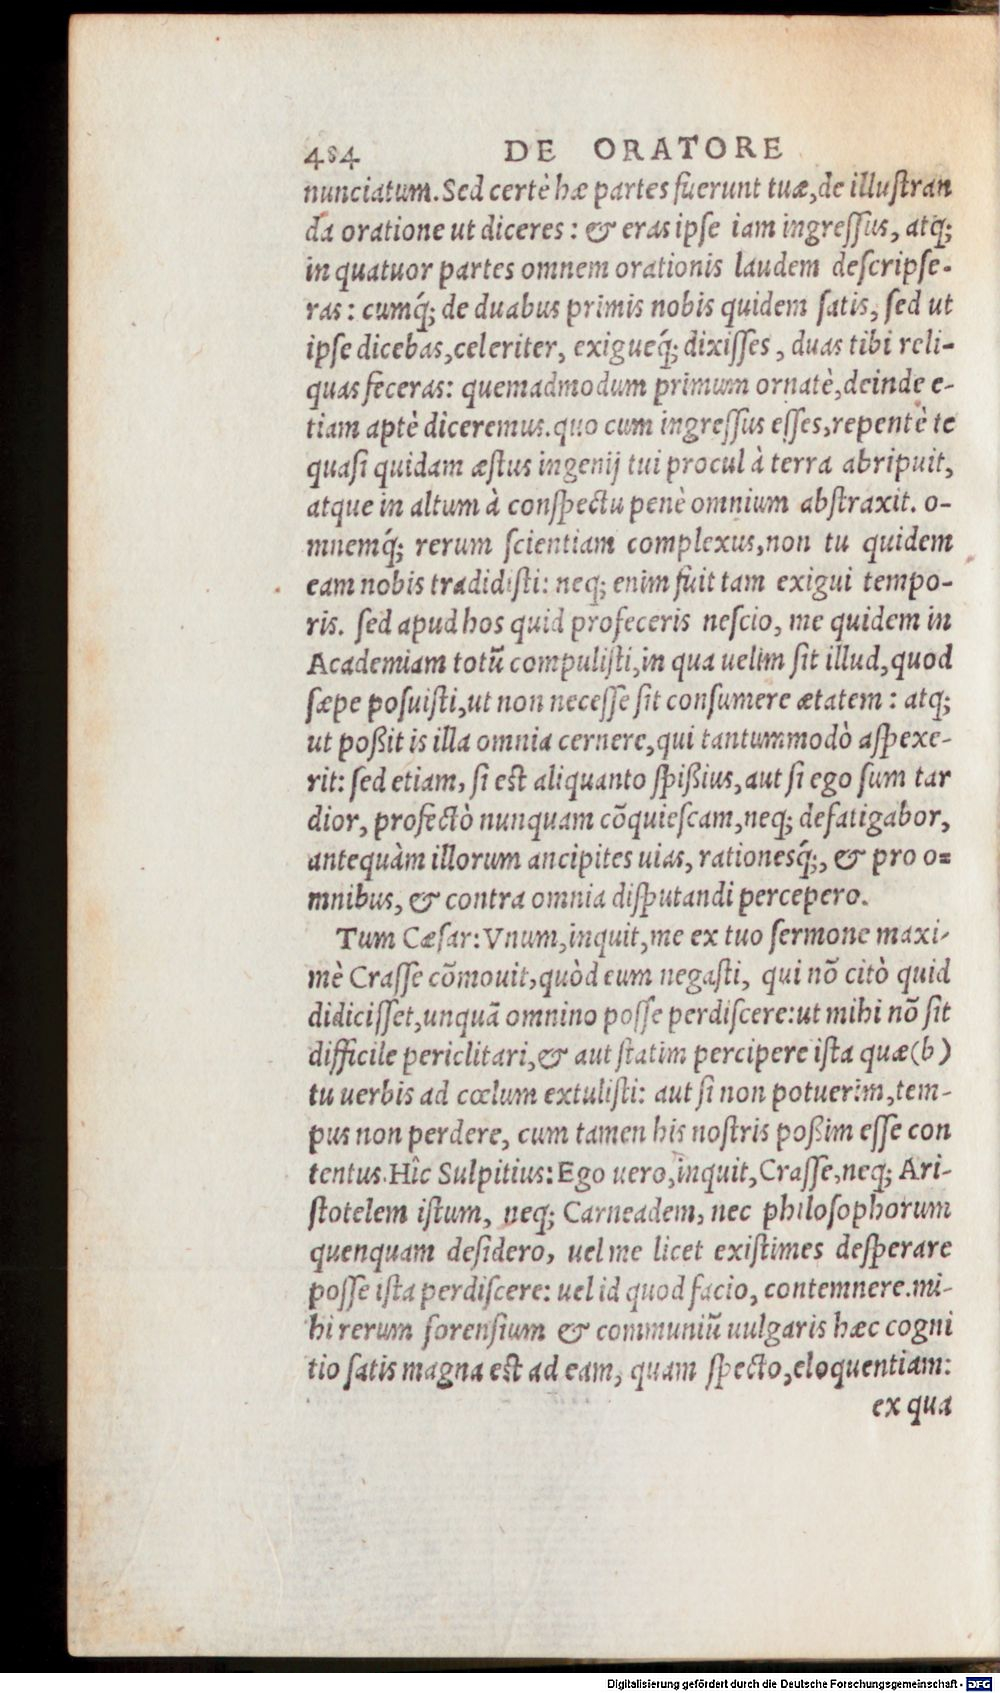 484 DE ORATORE
nunciatum. Sed certè hæ partes fuerunt tuæ, de illuſtran
da oratione ut diceres: & eras ipſe iam ingreſſus, atq;
in quatuor partes omnem orationis laudem deſcripſe-
ras: cumq́; de duabus primis nobis quidem ſatis, ſed ut
ipſe dicebas, celeriter, exigueq́; dixiſſes, duas tibi reli-
quas feceras: quemadmodum primum ornatè, deinde e-
tiam aptè diceremus. quo cum ingreſſus eſſes, repentè te
quaſi quidam æſtus ingenij tui procul à terra abripuit,
atque in altum à conſpectu penè omnium abſtraxit. o-
mnemq́; rerum ſcientiam complexus, non tu quidem
eam nobis tradidiſti: neq; enim fuit tam exigui tempo-
ris. ſed apud hos quid profeceris neſcio, me quidem in
Academiam totũ compuliſti, in qua uelim ſit illud, quod
ſæpe poſuiſti, ut non neceſſe ſit conſumere ætatem: atq;
ut poßit is illa omnia cernere, qui tantummodò aſpexe-
rit: ſed etiam, ſi eſt aliquanto ſpißius, aut ſi ego ſum tar
dior, profectò nunquam cõquieſcam, neq; defatigabor,
antequàm illorum ancipites uias, rationesq́;, & pro o-
mnibus, & contra omnia diſputandi percepero.
Tum Cæſar: Vnum, inquit, me ex tuo ſermone maxi-
mè Craſſe cõmouit, quòd eum negaſti, qui nõ citò quid
didiciſſet, unquã omnino poſſe perdiſcere: ut mihi nõ ſit
difficile periclitari, & aut ſtatim percipere iſta quæ (b)
tu uerbis ad cœlum extuliſti: aut ſi non potuerim, tem-
pus non perdere, cum tamen his noſtris poßim eſſe con
tentus. Hîc Sulpitius: Ego uero, inquit, Craſſe, neq; Ari-
ſtotelem iſtum, neq; Carneadem, nec philoſophorum
quenquam deſidero, uel me licet exiſtimes deſperare
poſſe iſta perdiſcere: uel id quod facio, contemnere. mi-
hi rerum forenſium & communiũ uulgaris hæc cogni
tio ſatis magna eſt ad eam, quam ſpecto, eloquentiam:
ex qua
Digitalisierung gefördert durch die Deutsche Forschungsgemeinschaft - DFG